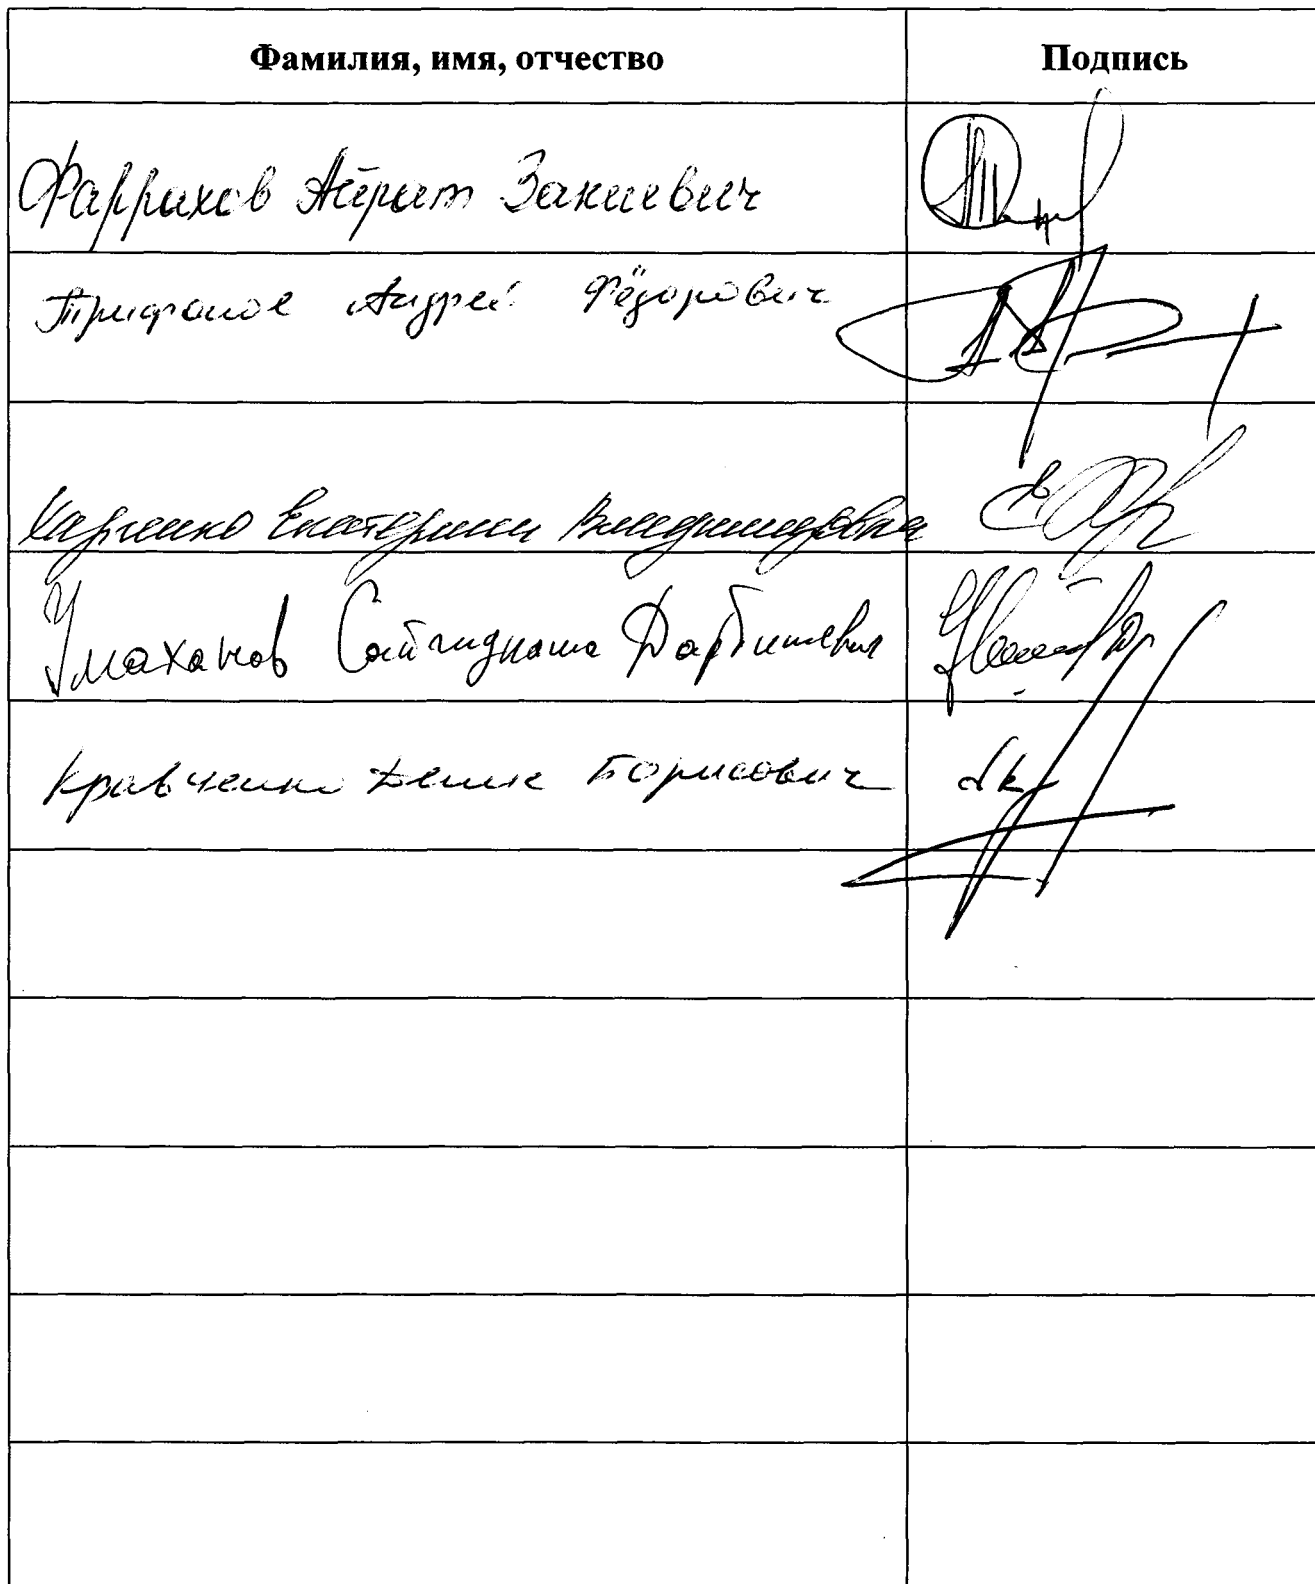 Фамилия, имя, отчество Подпись
Фаррахов Айрат Закиевич
Трифонов Андрей Фёдорович
Харченко Екатерина Владимировна
Умаханов Сайгидпаша Дарбишевич
Кравченко Денис Борисович